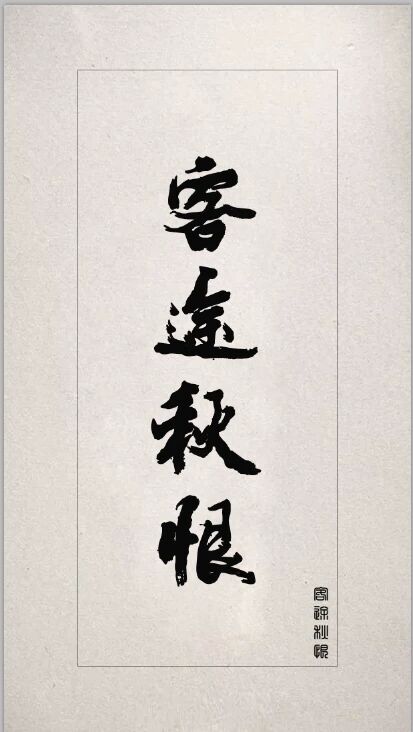 客途秋恨
客途秋恨